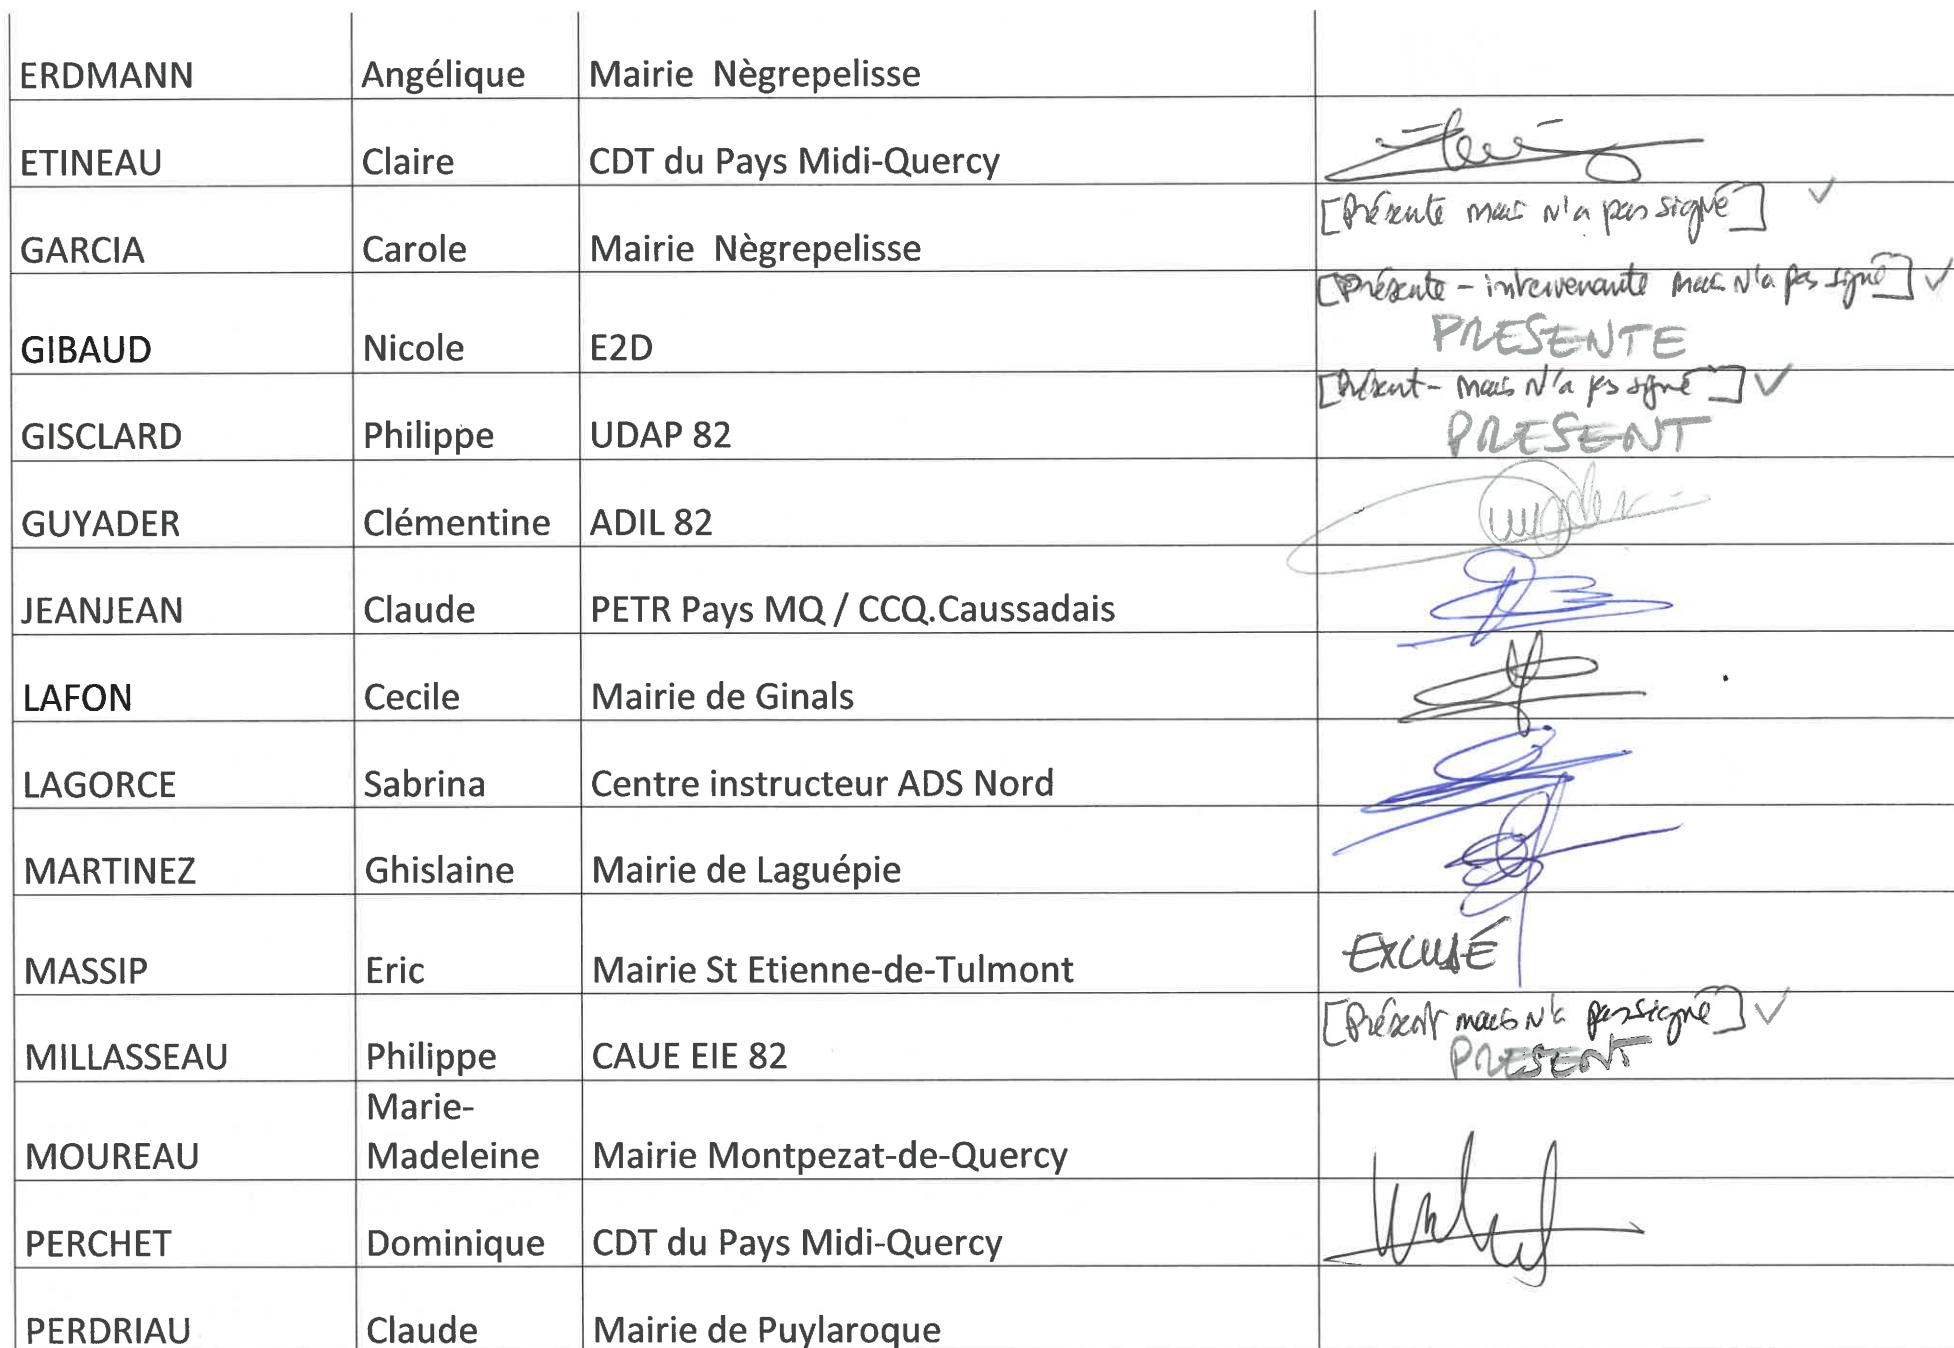 ERDMANN Angélique Mairie Nègrepelisse
ETINEAU Claire CDT du Pays Midi-Quercy
[Présente mais n'a pas signé] ✓
GARCIA Carole Mairie Nègrepelisse
[Présente - intervenante mais n'a pas signé] ✓
GIBAUD Nicole E2D PRESENTE
[Présent - mais n'a pas signé] ✓
GISCLARD Philippe UDAP 82 PRESENT
GUYADER Clémentine ADIL 82
JEANJEAN Claude PETR Pays MQ / CCQ.Caussadais
LAFON Cecile Mairie de Ginals
LAGORCE Sabrina Centre instructeur ADS Nord
MARTINEZ Ghislaine Mairie de Laguépie
MASSIP Eric Mairie St Etienne-de-Tulmont EXCUSÉ
[Présent mais n'a pas signé] ✓
MILLASSEAU Philippe CAUE EIE 82 PRESENT
Marie-
MOUREAU Madeleine Mairie Montpezat-de-Quercy
PERCHET Dominique CDT du Pays Midi-Quercy
PERDRIAU Claude Mairie de Puylaroque